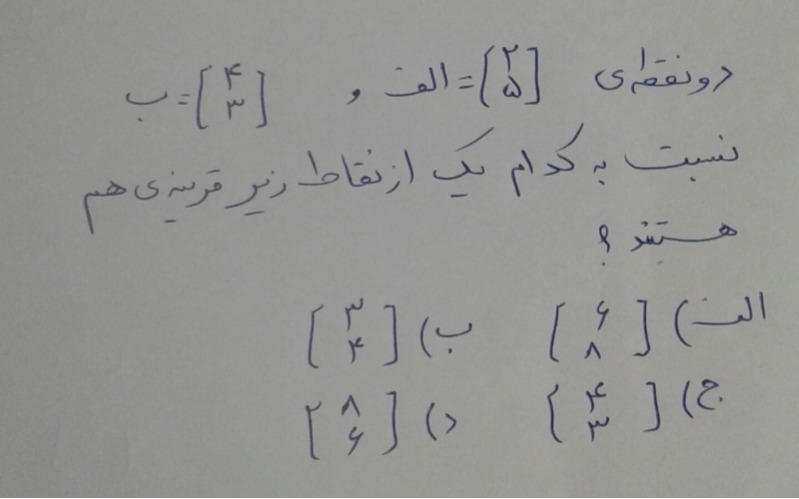 دو نقطه‌ی [۲ ۵] = الف و [۴ ۳] = ب
نسبت به کدام یک از نقاط زیر قرینه‌ی هم
هستند ؟
الف) [۶ ۸] ب) [۳ ۴]
ج) [۴ ۳] د) [۸ ۶]